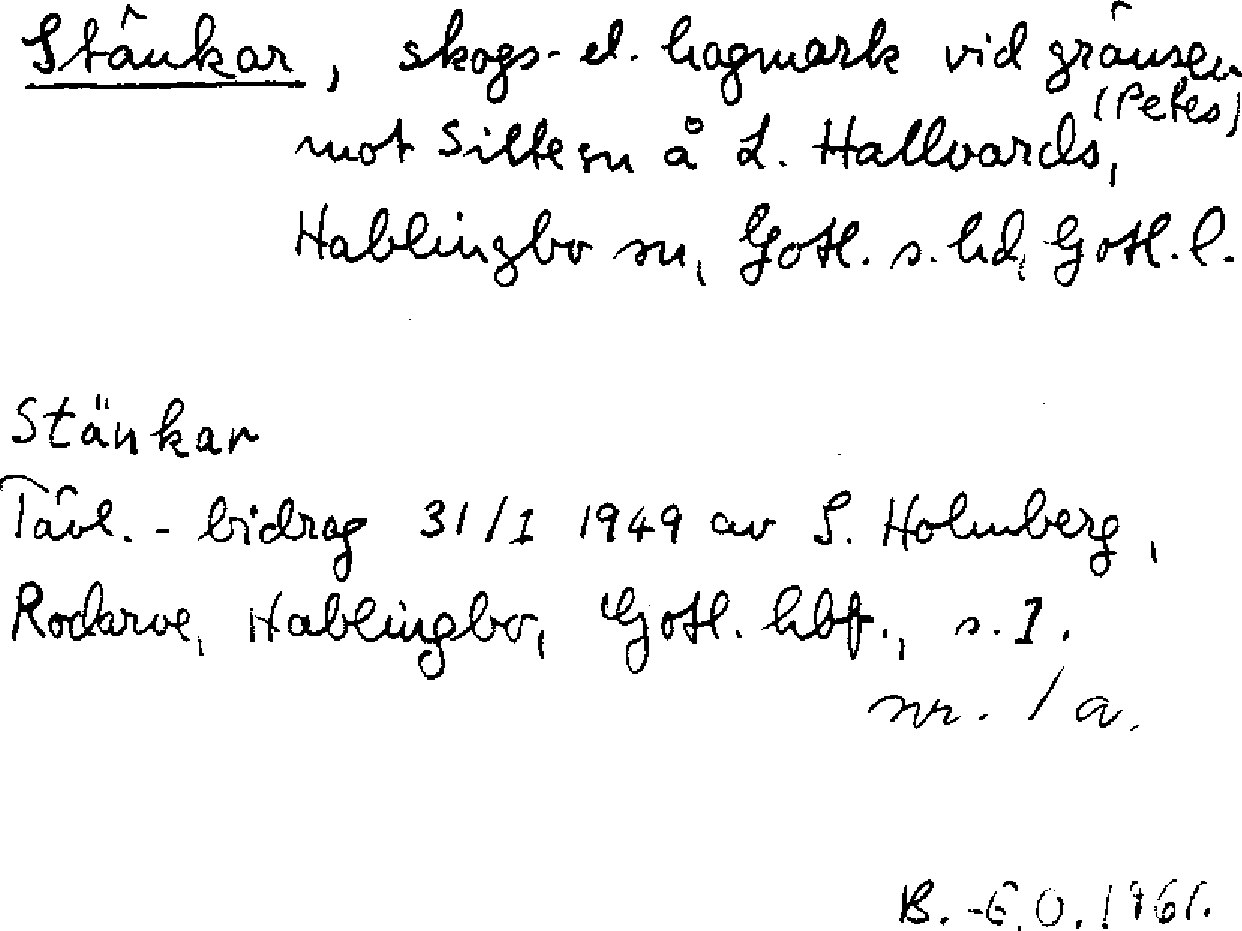 Stänkar, skogs- el. hagmark vid gränsen
(Petes)
mot Silte sn å L. Hallvards,
Hablingbo sn, Gotl. s. hd, Gotl. l.
Stänkar
Tävl.-bidrag 31/1 1949 av S. Holmberg,
Rodarve, Hablingbo, Gotl. hbf., s. 1.
nr. 1a.
B.-E.O. 1961.